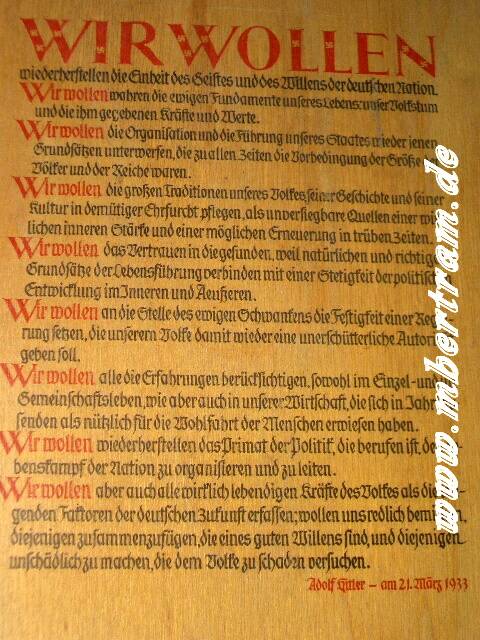 WIR WOLLEN
wiederherstellen die Einheit des Geistes und des Willens der deutschen Nation.
Wir wollen wahren die ewigen Fundamente unseres Lebens: unser Volkstum
und die ihm gegebenen Kräfte und Werte.
Wir wollen die Organisation und die Führung unseres Staates wieder jenen
Grundsätzen unterwerfen, die zu allen Zeiten die Vorbedingung der Größe de
Völker und der Reiche waren.
Wir wollen die großen Traditionen unseres Volkes, seiner Geschichte und seiner
Kultur in demütiger Ehrfurcht pflegen, als unversiegbare Quellen einer wi
lichen inneren Stärke und einer möglichen Erneuerung in trüben Zeiten.
Wir wollen das Vertrauen in die gesunden, weil natürlichen und richtige
Grundsätze der Lebensführung verbinden mit einer Stetigkeit der politisch
Entwicklung im Inneren und Aeußeren.
Wir wollen an die Stelle des ewigen Schwankens die Festigkeit einer Reg
rung setzen, die unserem Volke damit wieder eine unerschütterliche Autori
geben soll.
Wir wollen alle die Erfahrungen berücksichtigen, sowohl im Einzel- und
Gemeinschaftsleben, wie aber auch in unserer Wirtschaft, die sich in Jahr
senden als nützlich für die Wohlfahrt der Menschen erwiesen haben.
Wir wollen wiederherstellen das Primat der Politik, die berufen ist, de
benskampf der Nation zu organisieren und zu leiten.
Wir wollen aber auch alle wirklich lebendigen Kräfte des Volkes als die
genden Faktoren der deutschen Zukunft erfassen; wollen uns redlich bemü
diejenigen zusammenzufügen, die eines guten Willens sind, und diejenigen
unschädlich zu machen, die dem Volke zu schaden versuchen.
Adolf Hitler – am 21. März 1933
www.mbertram.de